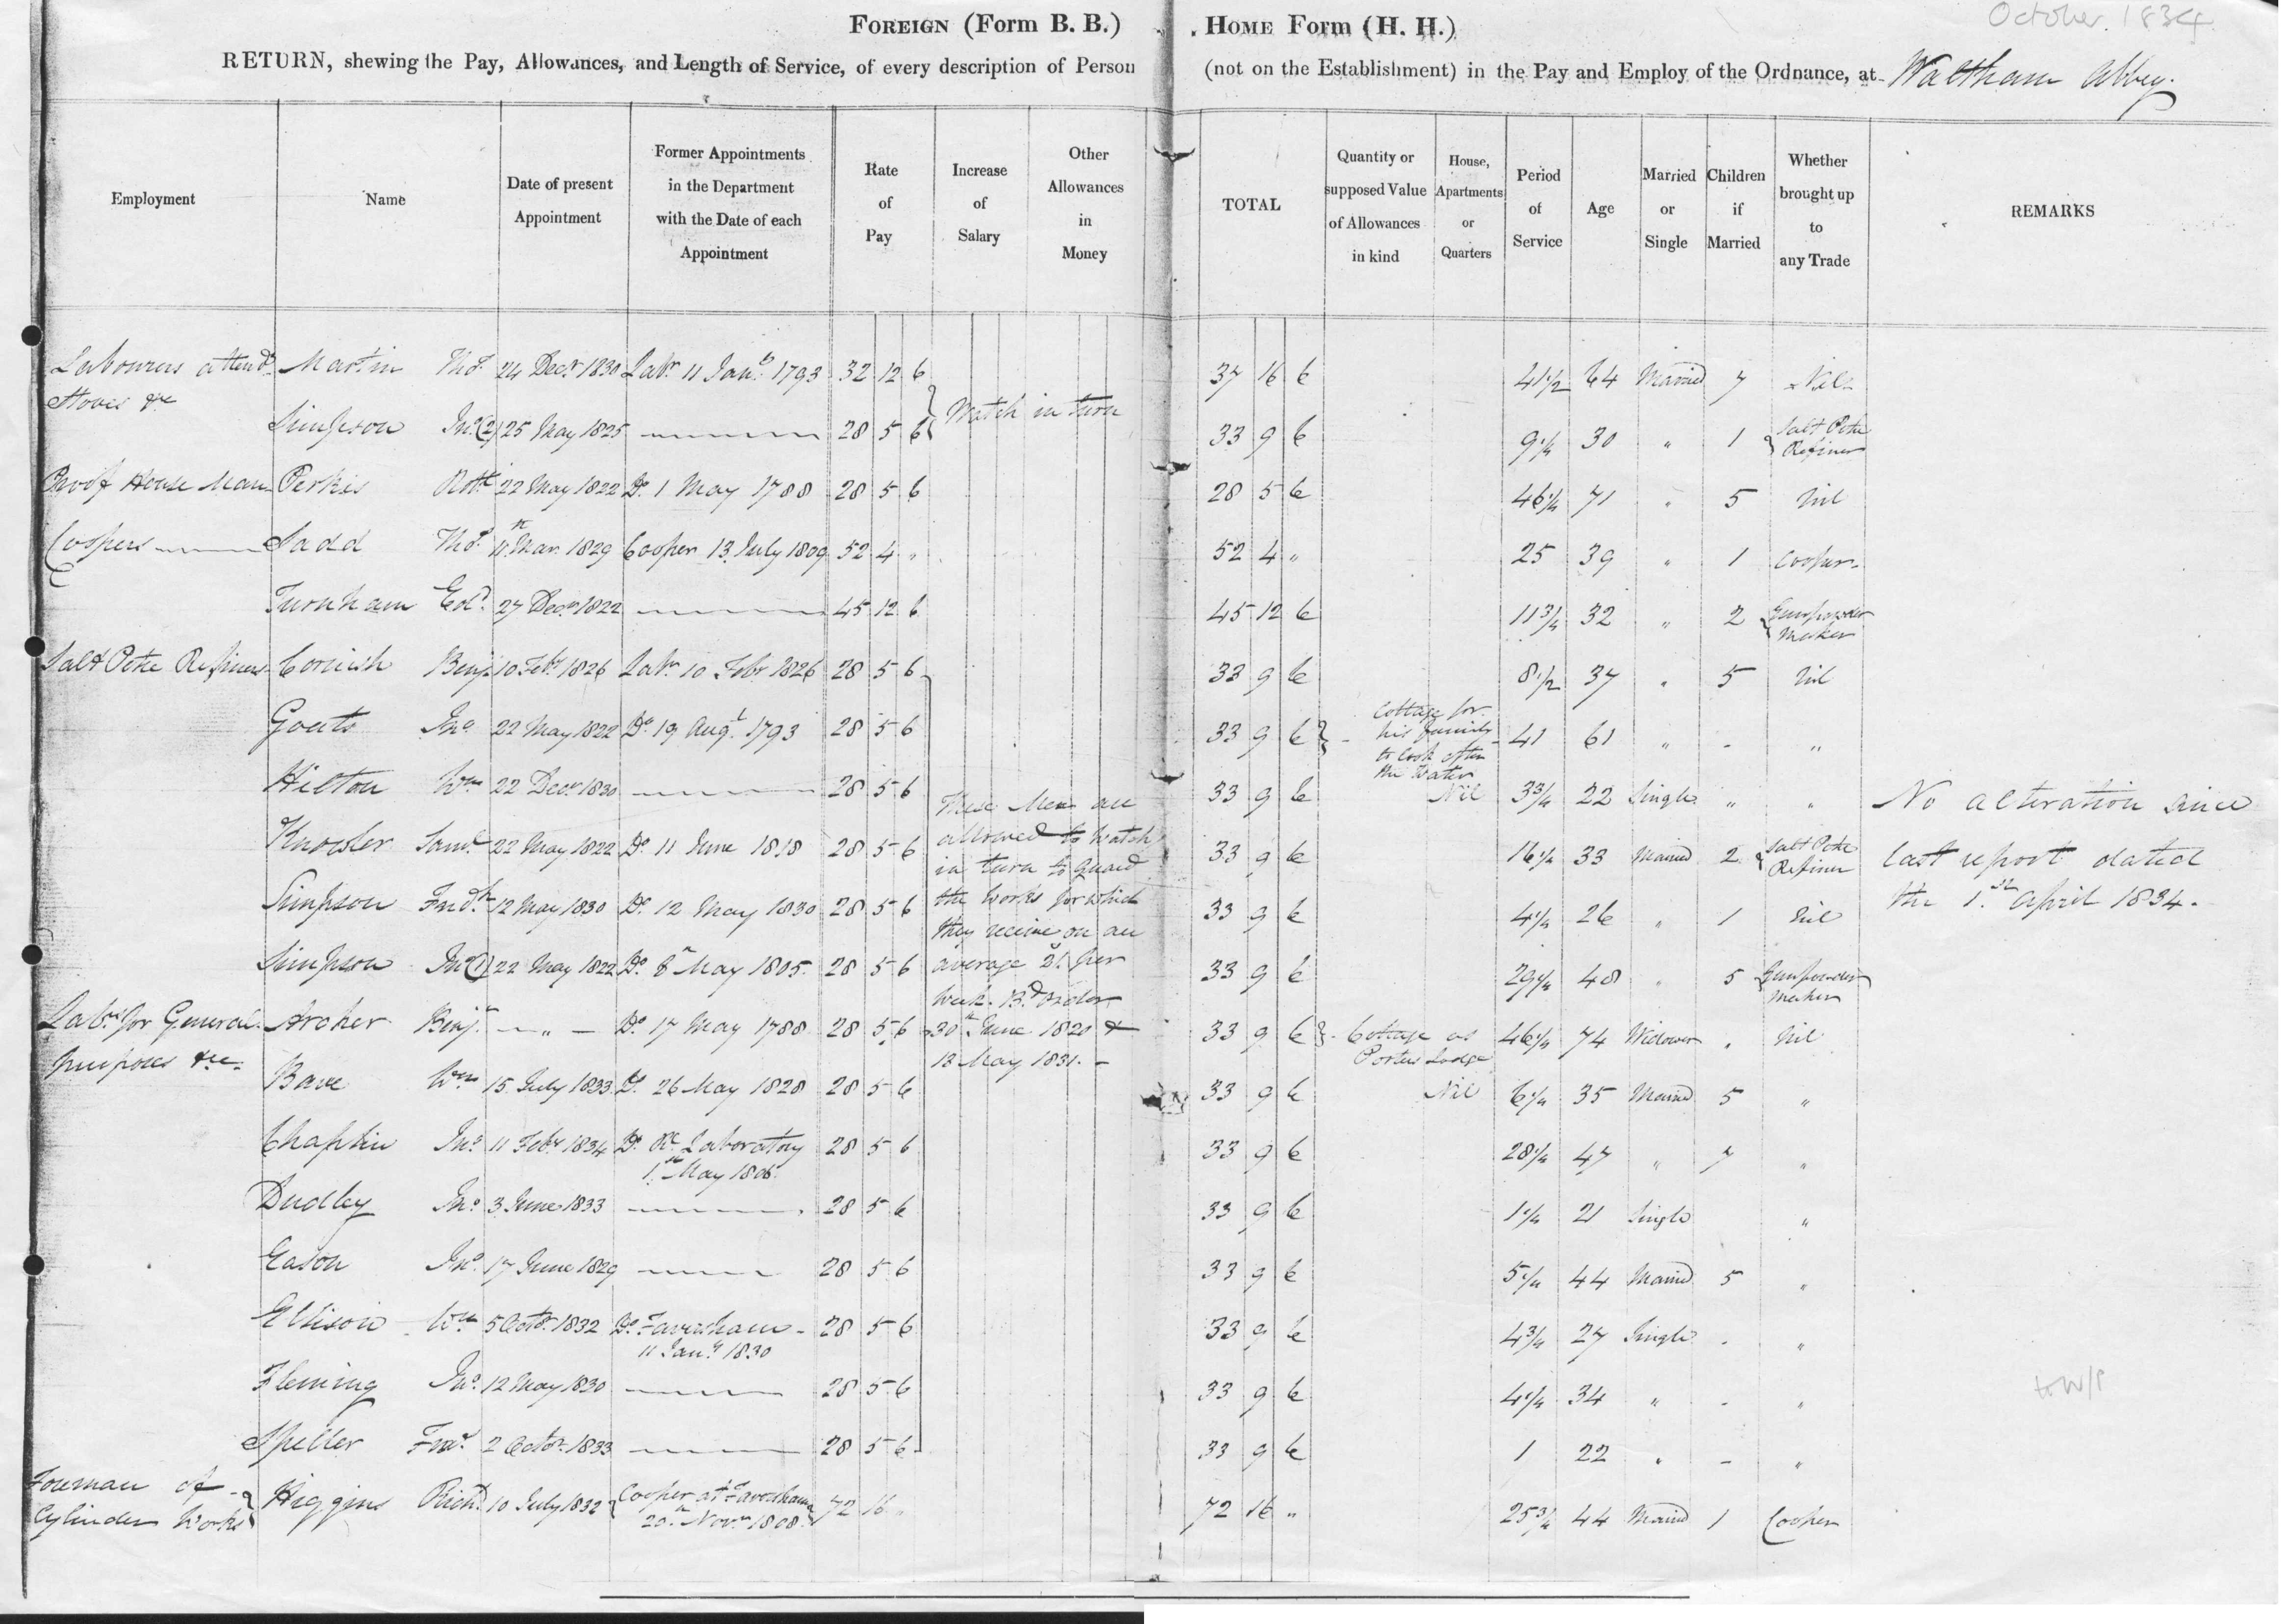 October. 1834
FOREIGN (Form B. B.) HOME Form (H. H.)
RETURN, shewing the Pay, Allowances, and Length of Service, of every description of Person (not on the Establishment) in the Pay and Employ of the Ordnance, at Waltham Abbey.
Employment
Name
Date of present
Appointment
Former Appointments
in the Department
with the Date of each
Appointment
Rate
of
Pay
Increase
of
Salary
Other
Allowances
in
Money
TOTAL
Quantity or
supposed Value
of Allowances
in kind
House,
Apartments
or
Quarters
Period
of
Service
Age
Married
or
Single
Children
if
Married
Whether
brought up
to
any Trade
REMARKS
Labourers attendg Martin Thos. 24 Decr. 1830 Labr. 11 Jany. 1793 32 12 6 37 16 6 41 1/2 64 Married 7 Nil
Stoves &c
Simpson Jno. (2) 25 May 1825 28 5 6 Watch in turn 33 9 6 9 1/4 30 " 1 Salt Petre
Refiner
Proof House Man Perkis Robt. 22 May 1822 Do. 1 May 1788 28 5 6 28 5 6 46 1/4 71 " 5 Nil
Coopers Sadd Thos. 11th Mar. 1829 Cooper 13 July 1809 52 4 " 52 4 " 25 39 " 1 Cooper
Turnham Edd. 27 Decr. 1822 45 12 6 45 12 6 11 3/4 32 " 2 Gunpowder
Maker
Salt Petre Refiners Cornish Benjn. 10 Feby. 1826 Labr. 10 Feby 1826 28 5 6 33 9 6 8 1/2 37 " 5 Nil
Goats Jno. 22 May 1822 Do. 19 Augt. 1793 28 5 6 33 9 6 41 61 " - "
Cottage for
his family
to look after
the Water
Hilton Wm 22 Decr. 1830 28 5 6 33 9 6 Nil 3 3/4 22 Single " "
Knowler Saml. 22 May 1822 Do. 11 June 1818 28 5 6 33 9 6 16 1/4 33 Married 2 Salt Petre
Refiner
Simpson Fredk. 12 May 1830 Do. 12 May 1830 28 5 6 33 9 6 4 1/4 26 " 1 Nil
Simpson Jno. (1) 22 May 1822 Do. 8th May 1805 28 5 6 33 9 6 29 1/4 48 " 5 Gunpowder
Maker
These Men are
allowed to Watch
in turn to guard
the works for which
they receive on an
average 2s. per
Week. Bd. Order
30th June 1820 &
18 May 1831. -
No alteration since
last report dated
the 1st. April 1834.
Labrs. for General Archer Benjn. - " - Do. 17 May 1788 28 5 6 33 9 6 Cottage as 46 1/4 74 Widower " Nil
Purposes &c Porters Lodge
Bave Wm 15 July 1833 Do. 26 May 1828 28 5 6 33 9 6 Nil 6 1/4 35 Married 5 "
Chaplin Jno. 11 Feby. 1834 Do. Rl. Laboratory 28 5 6 33 9 6 28 1/4 47 " 7 "
1st May 1806
Dudley Jno. 3 June 1833 28 5 6 33 9 6 1 1/4 21 Single "
Eason Jno. 17 June 1829 28 5 6 33 9 6 5 1/4 44 Married 5 "
Ellison Wm 5 Octor. 1832 Do. Faversham - 28 5 6 33 9 6 4 3/4 27 Single - "
11 Jany. 1830
Fleming Jno. 12 May 1830 28 5 6 33 9 6 4 1/4 34 " - "
Speller 2 Octor. 1833 28 5 6 33 9 6 1 22 " - "
Foreman of Higgins Richd. 10 July 1832 Cooper at Faversham 72 16 " 72 16 " 25 3/4 44 Married 1 Cooper
Cylinder Works 20th Novr. 1808